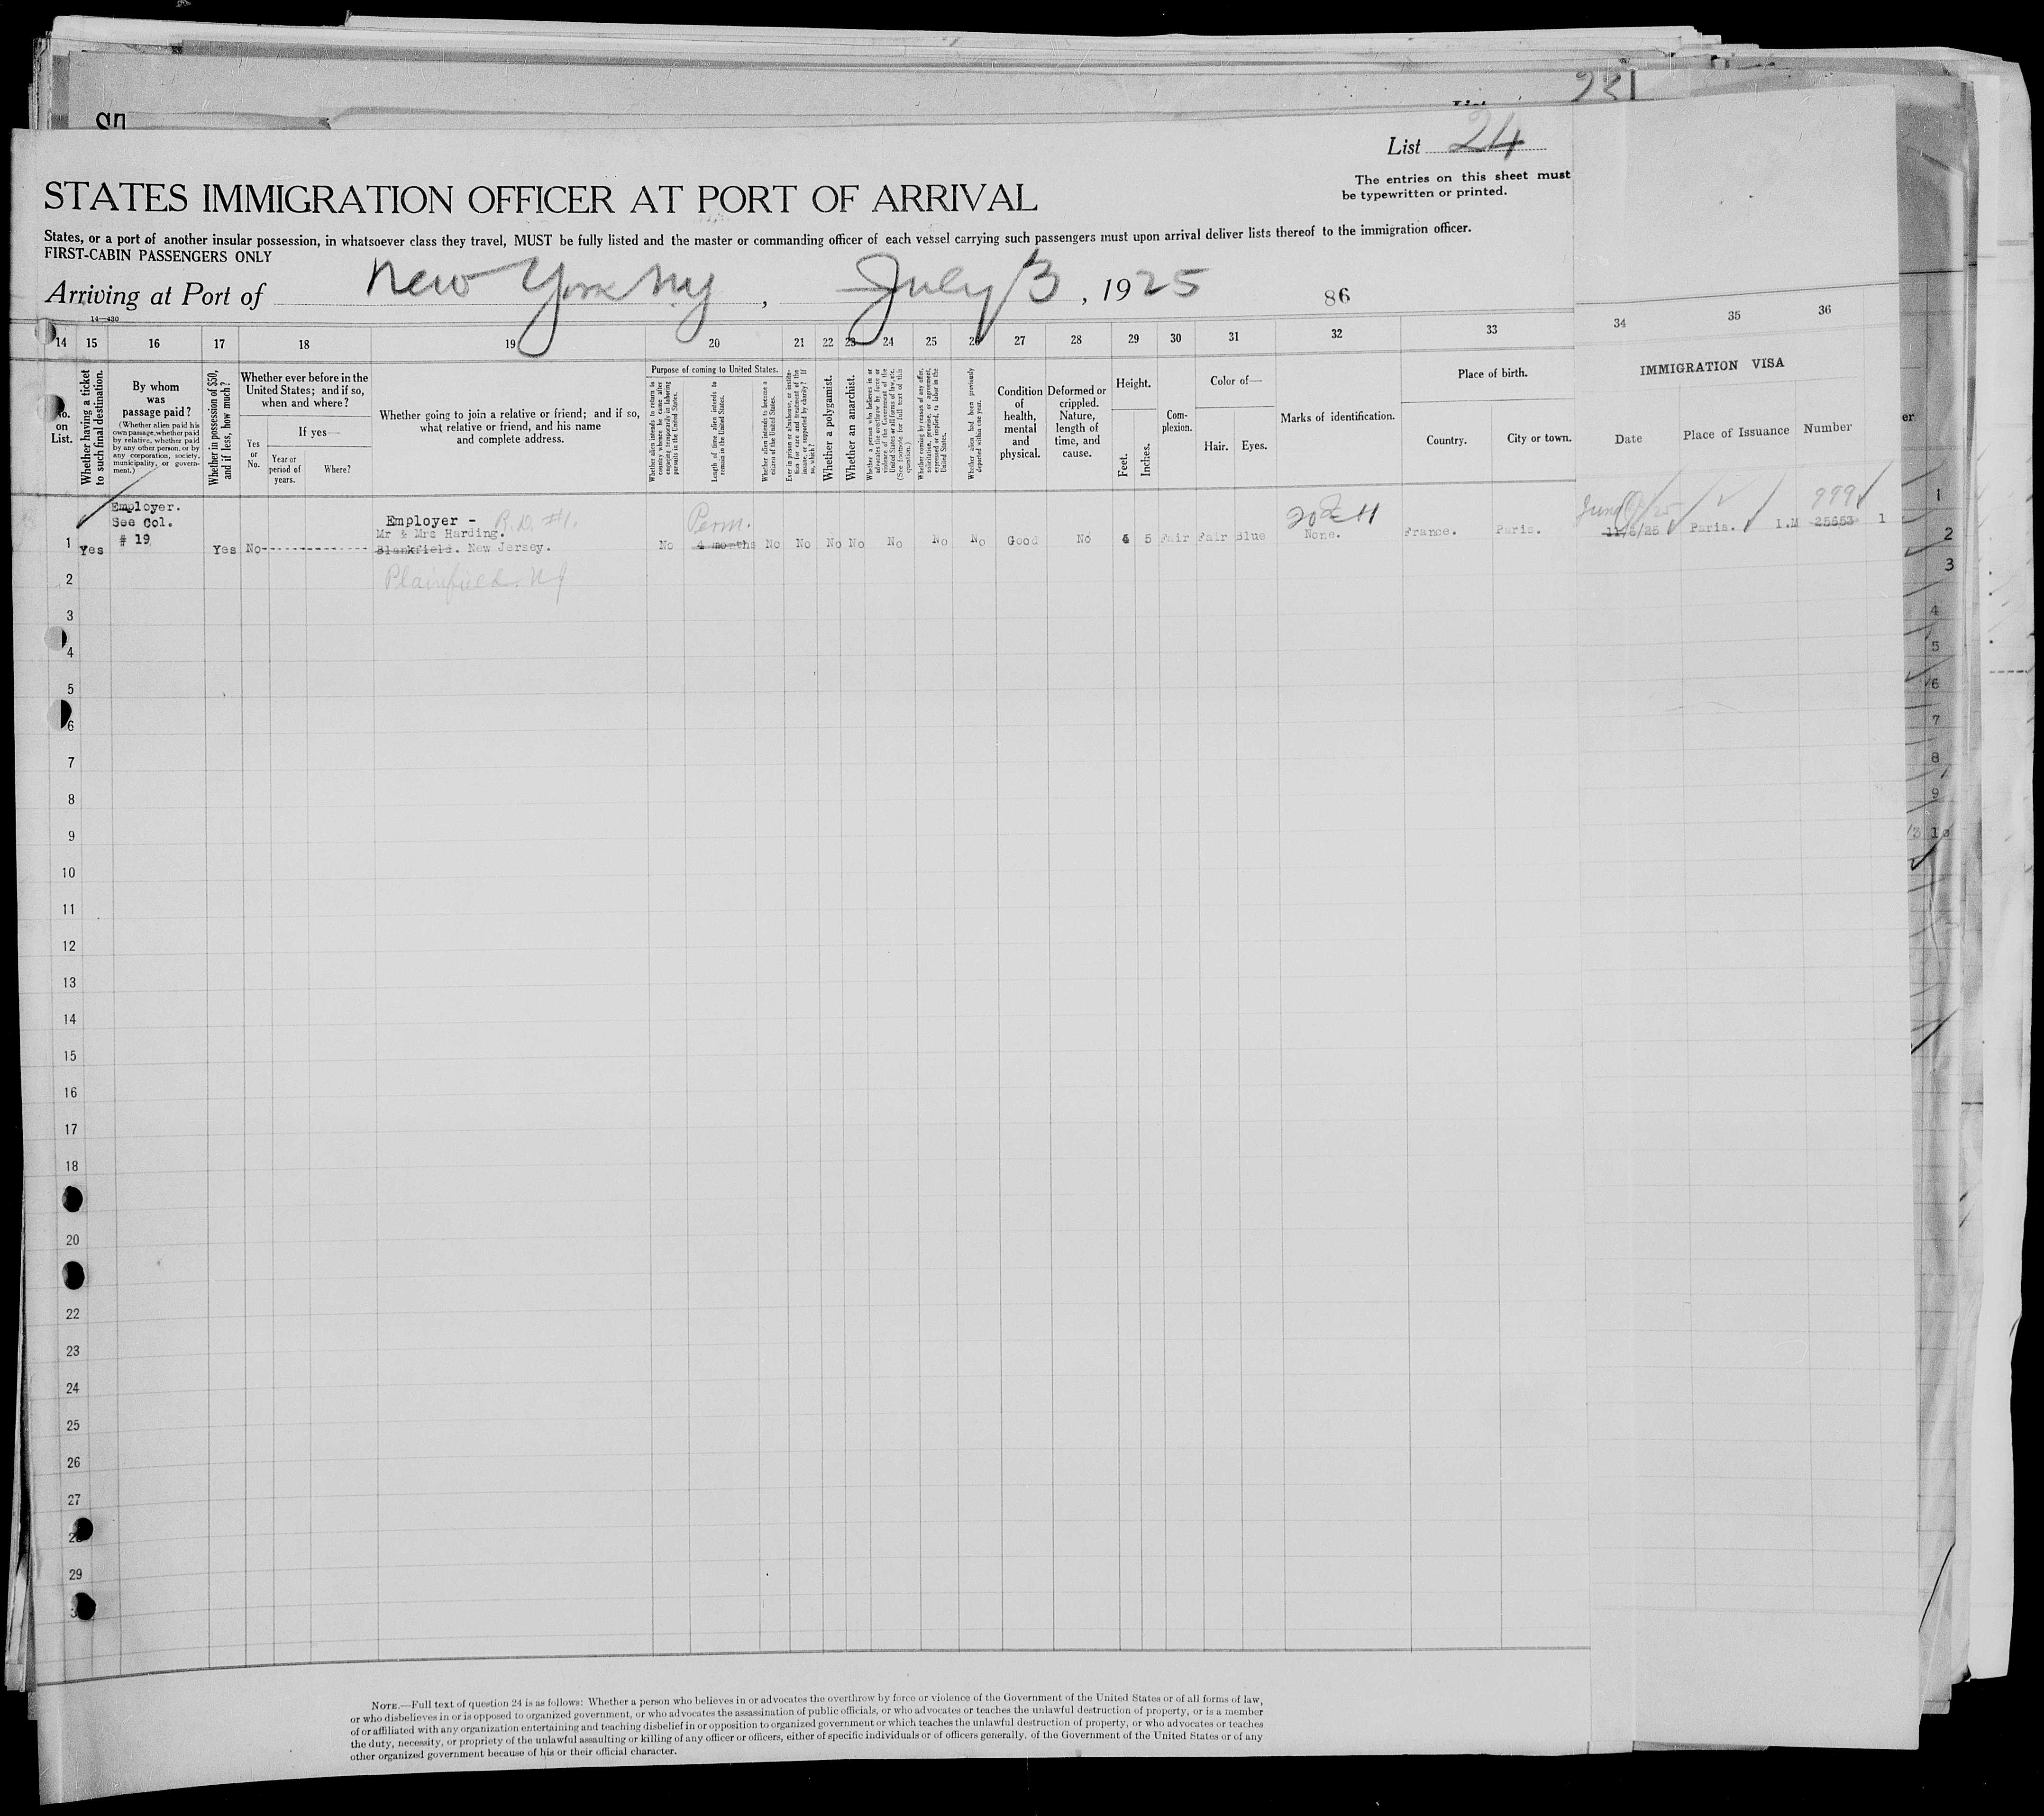 231
List 24
The entries on this sheet must
be typewritten or printed.
STATES IMMIGRATION OFFICER AT PORT OF ARRIVAL
States, or a port of another insular possession, in whatsoever class they travel, MUST be fully listed and the master or commanding officer of each vessel carrying such passengers must upon arrival deliver lists thereof to the immigration officer.
FIRST-CABIN PASSENGERS ONLY
Arriving at Port of New York NY, July 3, 1925
86
14—430
14 15 16 17 18 19 20 21 22 23 24 25 26 27 28 29 30 31 32 33 34 35 36
No. on List.
Whether having a ticket to such final destination.
By whom was passage paid?
(Whether alien paid his own passage, whether paid by relative, whether paid by any other person, or by any corporation, society, municipality, or government.)
Whether in possession of $50, and if less, how much?
Whether ever before in the United States; and if so, when and where?
Yes or No.
If yes—
Year or period of years.
Where?
Whether going to join a relative or friend; and if so, what relative or friend, and his name and complete address.
Purpose of coming to United States.
Whether alien intends to return to country whence he came after engaging temporarily in laboring pursuits in the United States.
Length of time alien intends to remain in the United States.
Whether alien intends to become a citizen of the United States.
Ever in prison or almshouse, or institution for care and treatment of the insane, or supported by charity? If so, which?
Whether a polygamist.
Whether an anarchist.
Whether a person who believes in or advocates the overthrow by force or violence of the Government of the United States or all forms of law, etc. (See footnote for full text of this question.)
Whether coming by reason of any offer, solicitation, promise, or agreement, expressed or implied, to labor in the United States.
Whether alien had been previously deported within one year.
Condition of health, mental and physical.
Deformed or crippled. Nature, length of time, and cause.
Height.
Feet.
Inches.
Complexion.
Color of—
Hair.
Eyes.
Marks of identification.
Place of birth.
Country.
City or town.
IMMIGRATION VISA
Date
Place of Issuance
Number
Employer.
See Col.
# 19
Employer - R.D. #1.
Mr & Mrs Harding.
Perm.
June /25
999
1 Yes Yes No Blankfield. New Jersey. No 4 months No No No No No No No Good No 5 Fair Fair Blue None. France. Paris. 11/6/25 Paris. I.M 25653 1
Plainfield. NJ
2
3
4
5
6
7
8
9
10
11
12
13
14
15
16
17
18
20
22
23
24
25
26
27
29
1
2
3
4
5
6
7
8
9
10
NOTE.—Full text of question 24 is as follows: Whether a person who believes in or advocates the overthrow by force or violence of the Government of the United States or of all forms of law,
or who disbelieves in or is opposed to organized government, or who advocates the assassination of public officials, or who advocates or teaches the unlawful destruction of property, or is a member
of or affiliated with any organization entertaining and teaching disbelief in or opposition to organized government or which teaches the unlawful destruction of property, or who advocates or teaches
the duty, necessity, or propriety of the unlawful assaulting or killing of any officer or officers, either of specific individuals or of officers generally, of the Government of the United States or of any
other organized government because of his or their official character.